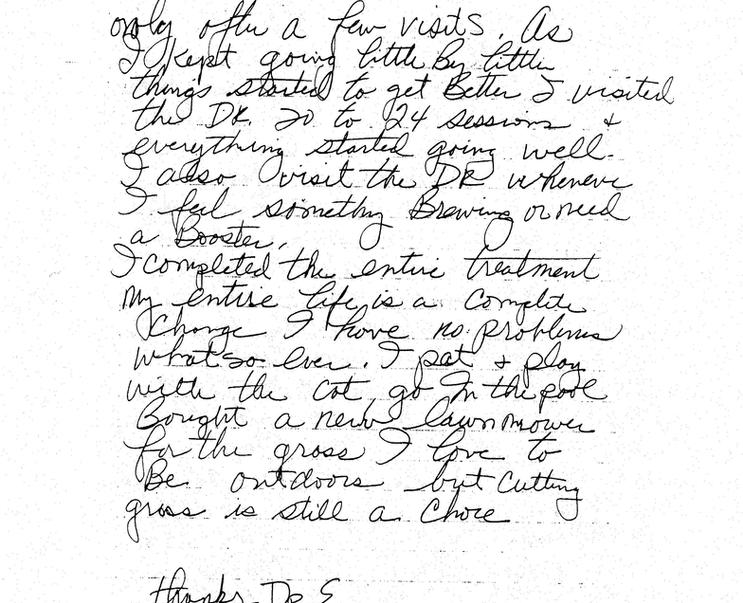 only after a few visits. As
I kept going little By little
things started to get Better I visited
the DR. 20 to 24 sessions &
everything started going well.
I also visit the DR wheneve
I feel somethg Brewing or need
a Booster.
I completed the entire treatment
my entire life is a complete
change I have no problems
what so ever. I pat & play
with the cat, go In the pool
Bought a new lawnmower
for the grass I love to
Be outdoors but cutting
grass is still a chore
thanks Dr E